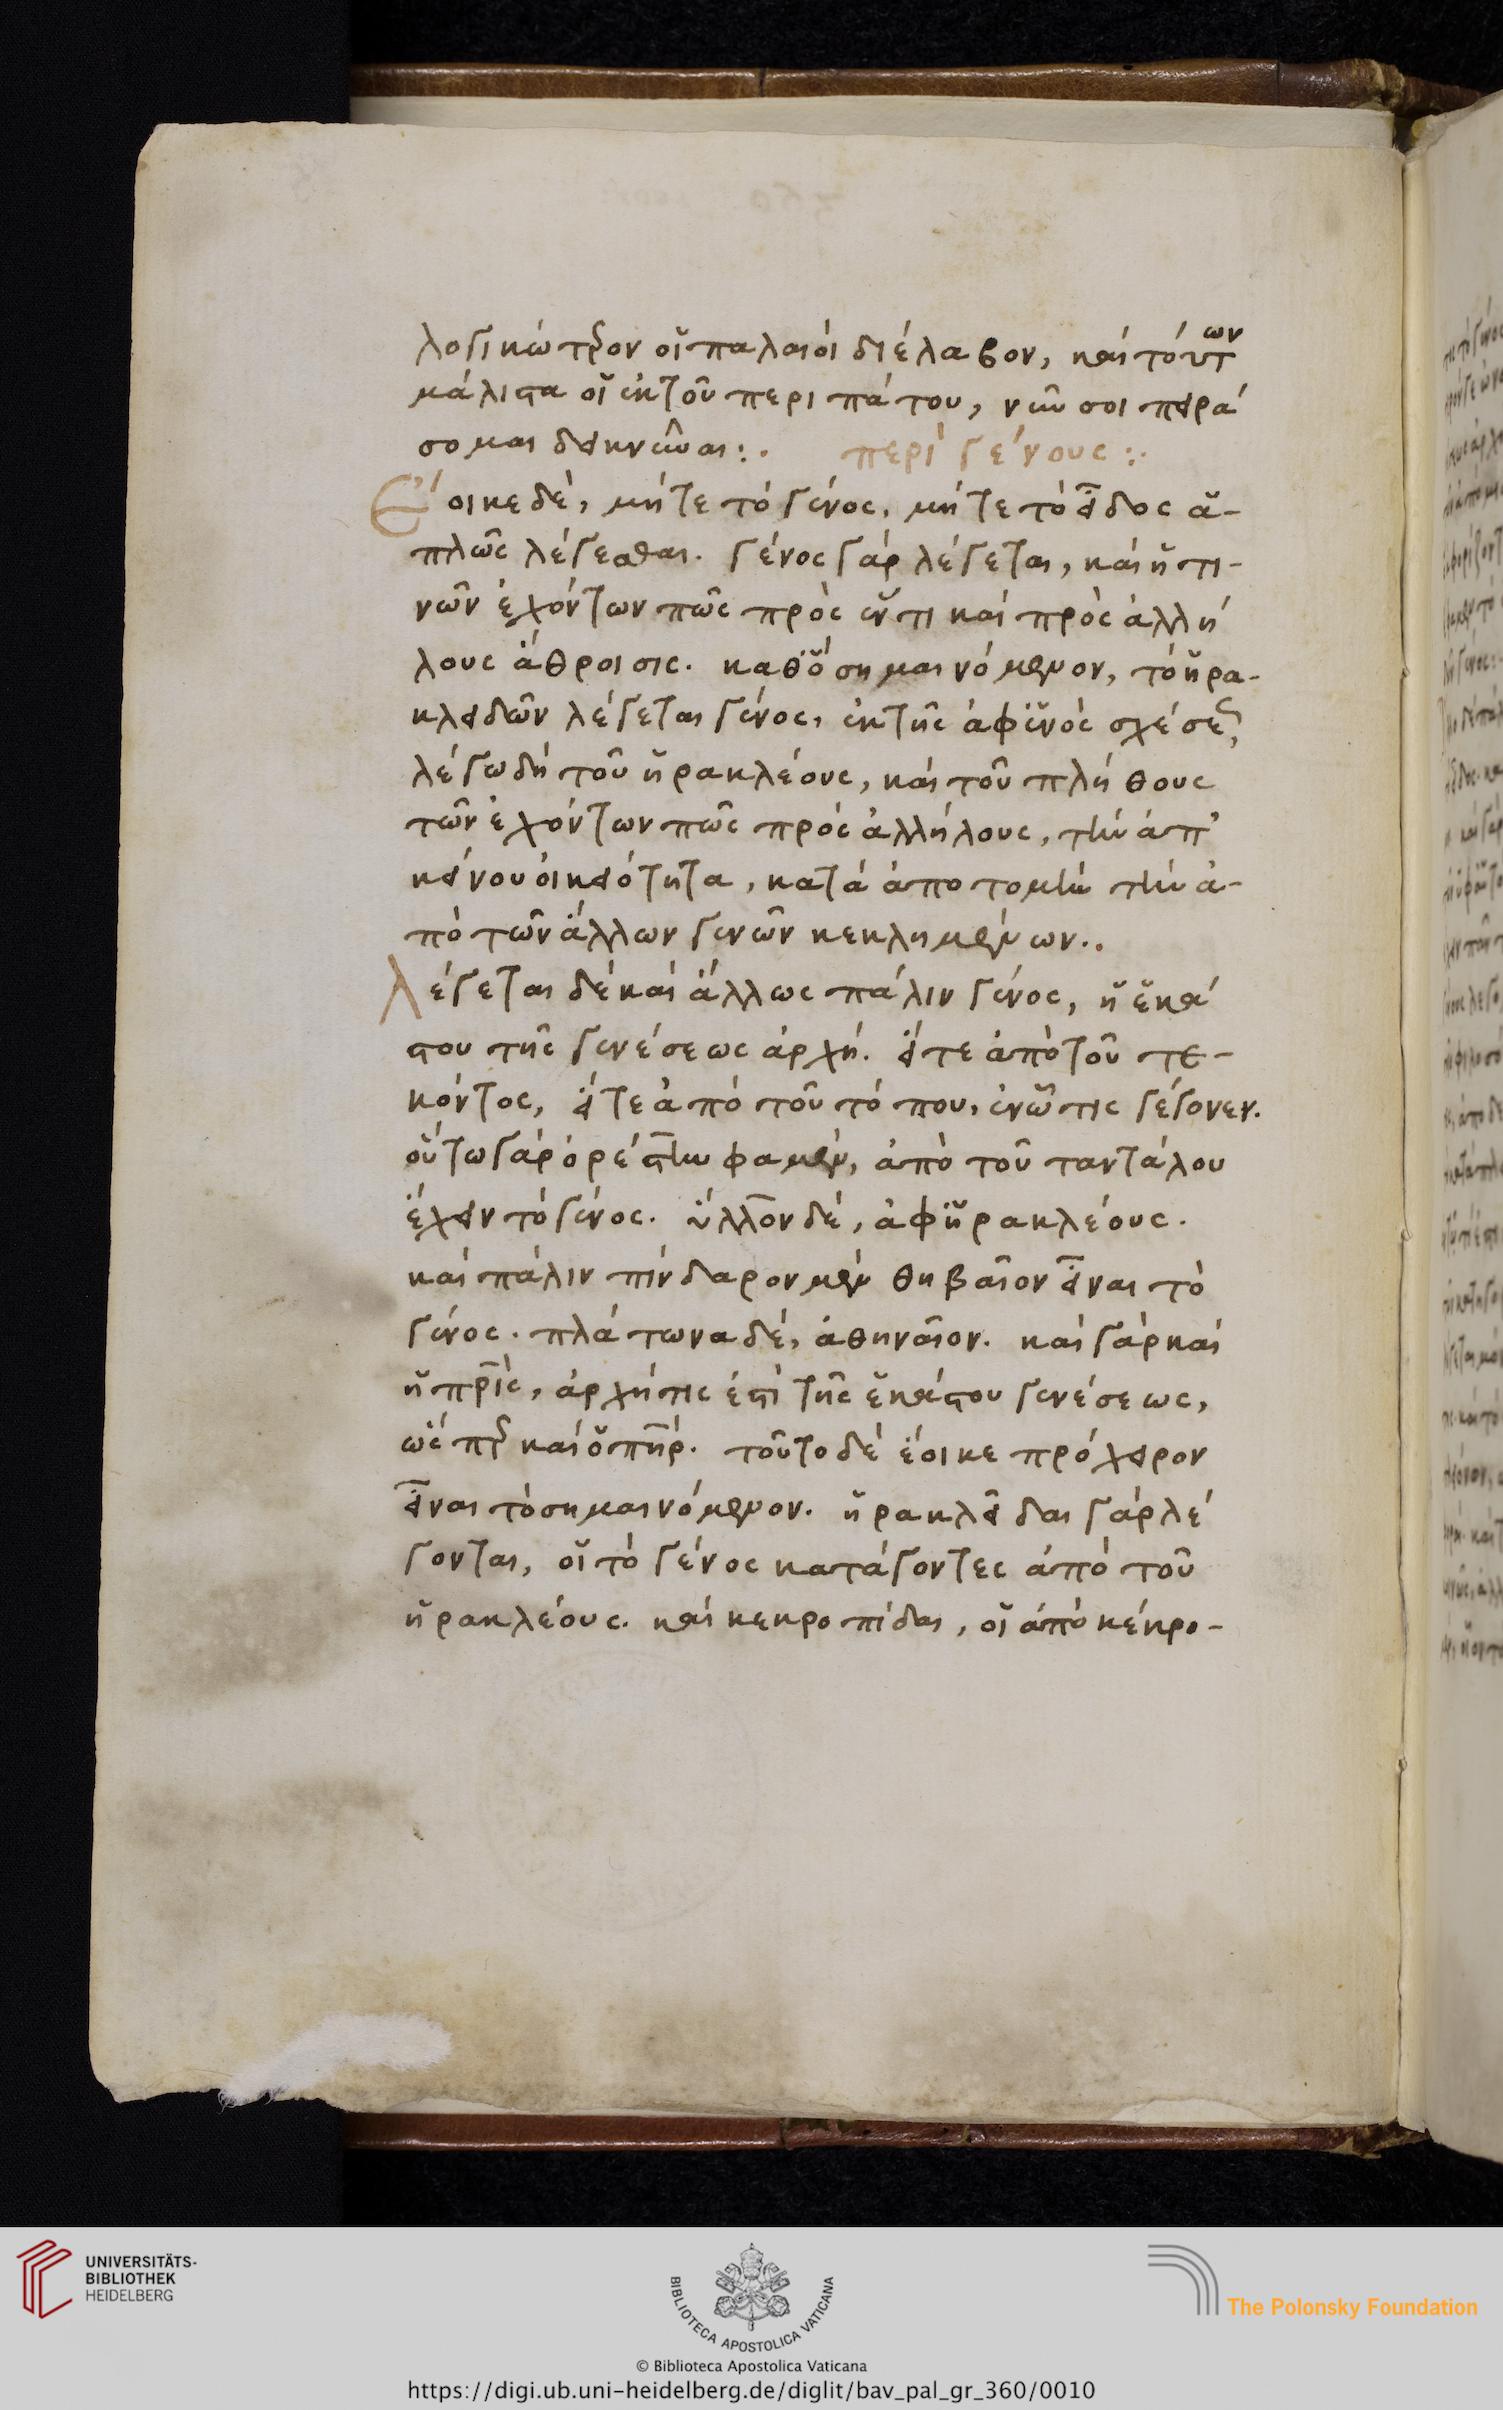 λογικώτερον οἱ παλαιοὶ διέλαβον, καὶ τούτων
μάλιστα οἱ ἐκ τοῦ περιπάτου, νῦν σοι πειρά
σομαι δεικνύναι:. περὶ γένους:.
Ἔοικε δὲ, μήτε τὸ γένος, μήτε τὸ εἶδος ἁ-
πλῶς λέγεσθαι. γένος γὰρ λέγεται, καὶ ἡ τι-
νῶν ἐχόντων πῶς πρὸς ἕν τι καὶ πρὸς ἀλλή
λους ἄθροισις. καθ' ὃ σημαινόμενον, τὸ ἡρα-
κλειδῶν λέγεται γένος, ἐκ τῆς ἀφ' ἑνὸς σχέσεως,
λέγω δὴ τοῦ ἡρακλέους, καὶ τοῦ πλήθους
τῶν ἐχόντων πῶς πρὸς ἀλλήλους, τὴν ἀπ'
κείνου οἰκειότητα, κατὰ ἀποτομὴν τὴν ἀ-
πὸ τῶν ἄλλων γενῶν κεκλημένων..
Λέγεται δὲ καὶ ἄλλως πάλιν γένος, ἡ ἑκά
στου τῆς γενέσεως ἀρχή. εἴτε ἀπὸ τοῦ τε-
κόντος, εἴτε ἀπὸ τοῦ τόπου, ἐν ᾧ τις γέγονεν.
οὕτω γὰρ ὀρέστην φαμὲν, ἀπὸ τοῦ ταντάλου
ἔχειν τὸ γένος. ὕλλον δὲ, ἀφ' ἡρακλέους.
καὶ πάλιν πίνδαρον μὲν θηβαῖον εἶναι τὸ
γένος. πλάτωνα δὲ, ἀθηναῖον. καὶ γὰρ καὶ
ἡ πρὶς, ἀρχή τις ἐστὶ τῆς ἑκάστου γενέσεως,
ὥσπερ καὶ ὁ πὴρ. τοῦτο δὲ ἔοικε πρόχειρον
εἶναι τὸ σημαινόμενον. ἡρακλεῖδαι γὰρ λέ
γονται, οἱ τὸ γένος κατάγοντες ἀπὸ τοῦ
ἡρακλέους. καὶ κεκροπίδαι, οἱ ἀπὸ κέκρο-
UNIVERSITÄTS-
BIBLIOTHEK
HEIDELBERG
BIBLIOTECA APOSTOLICA VATICANA
The Polonsky Foundation
© Biblioteca Apostolica Vaticana
https://digi.ub.uni-heidelberg.de/diglit/bav_pal_gr_360/0010